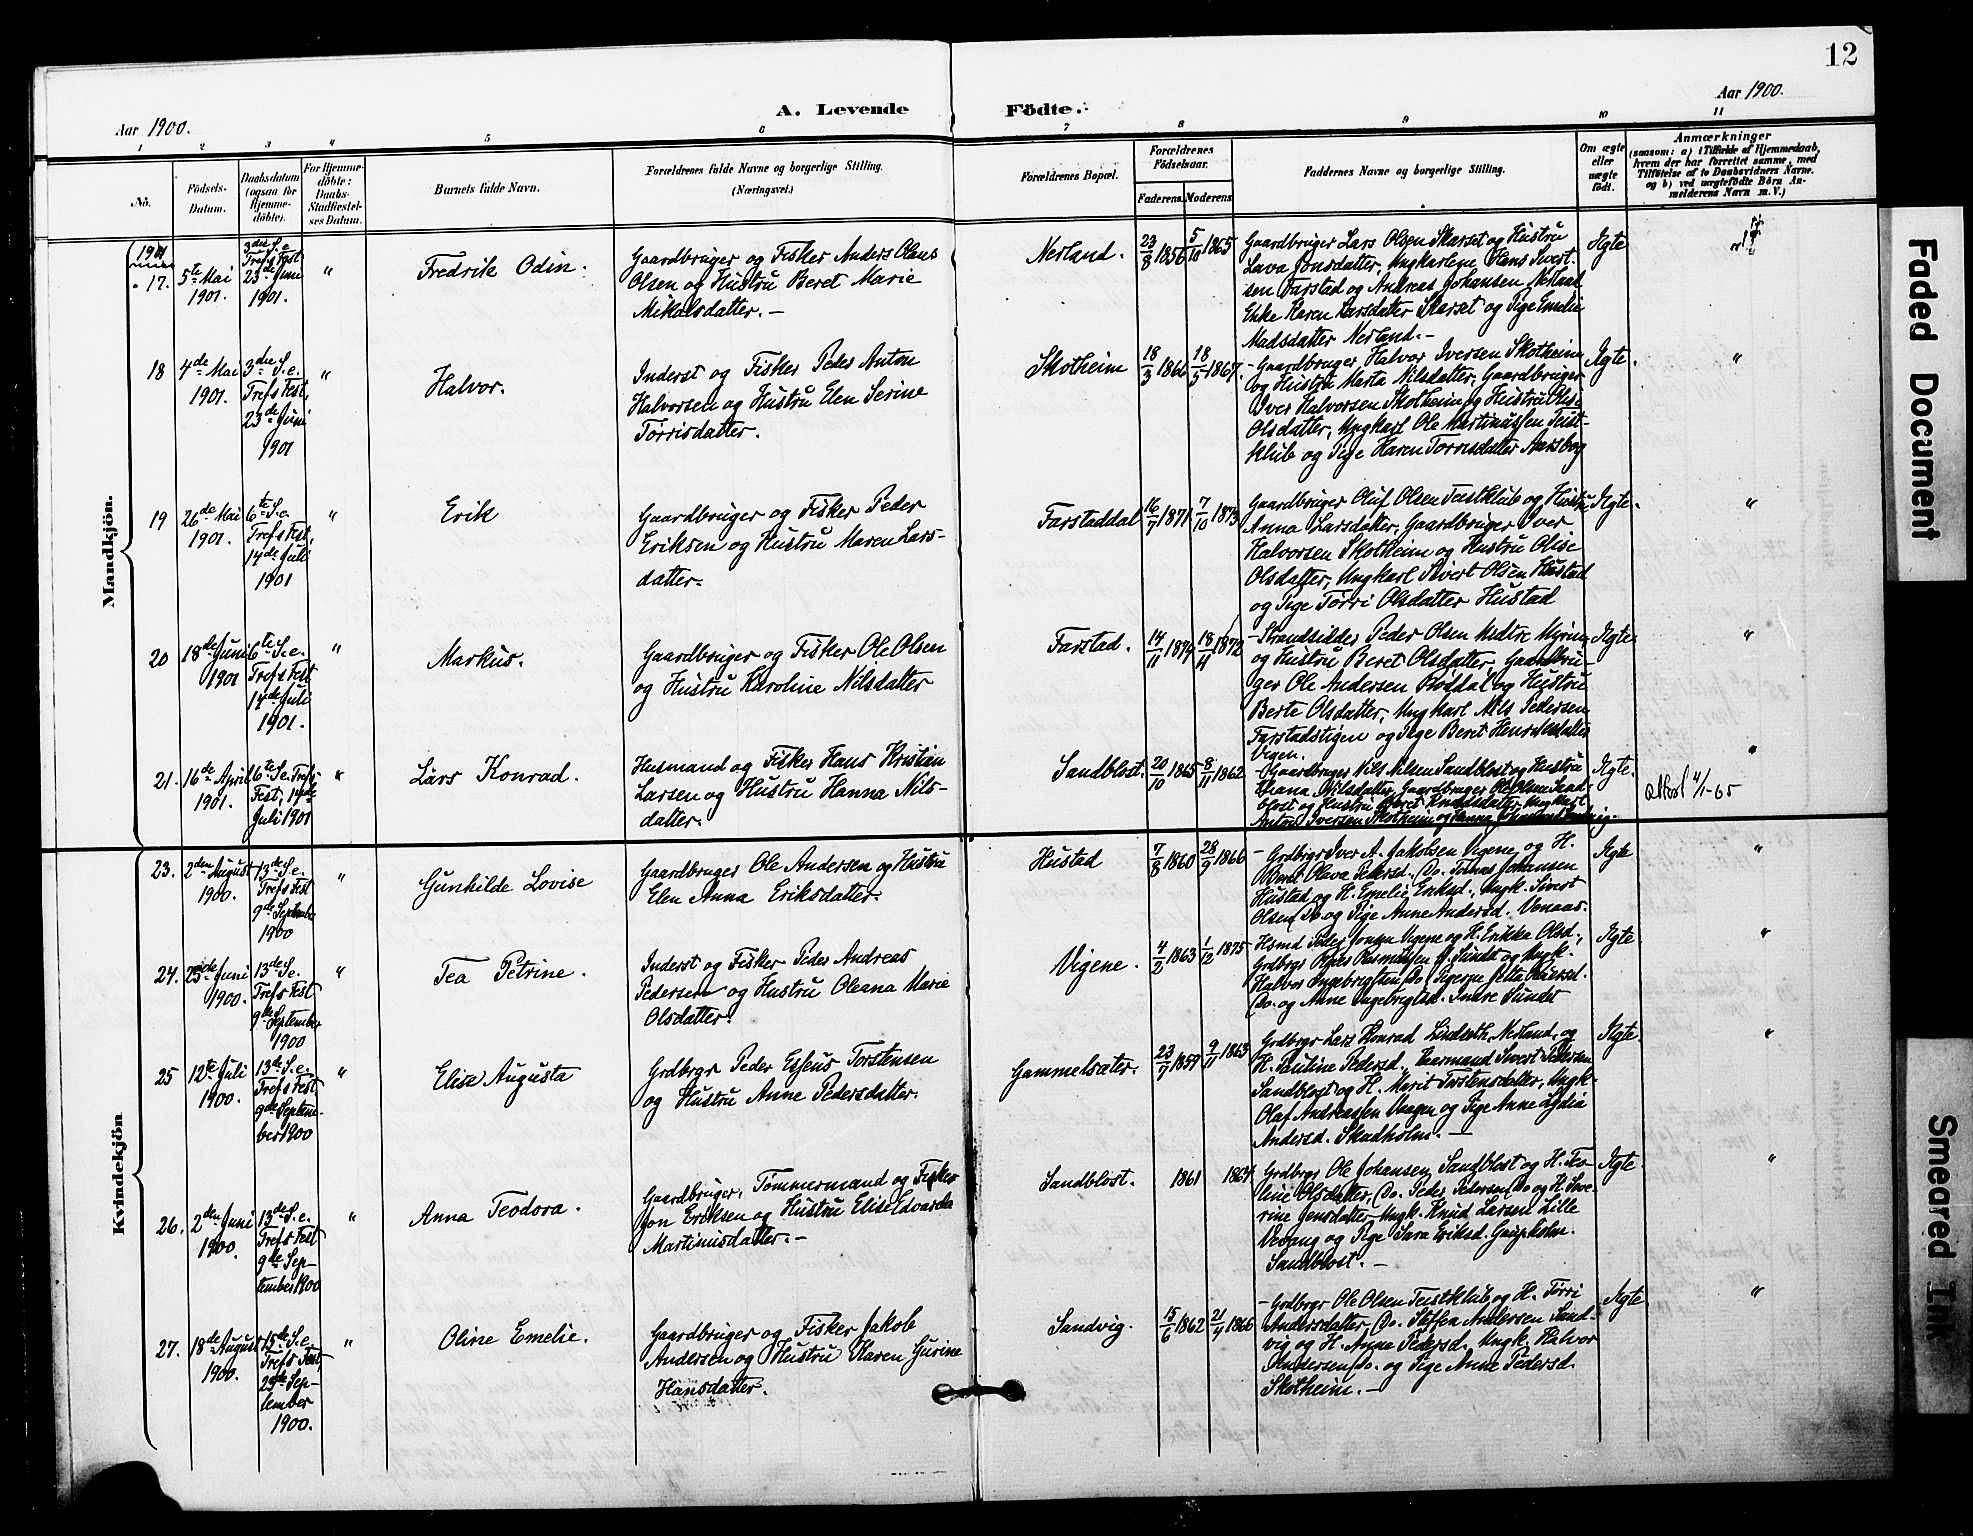 12
Aar 1900.
A. Levende Födte.
Aar 1900.
1 2 3 4 5 6 7 8 9 10 11
No.
Födsels-Datum.
Daabsdatum (ogsaa for Hjemme-döbte).
For Hjemme-döbte: Daabs-Stadfæstel-ses Datum.
Barnets fulde Navn.
Forældrenes fulde Navne og borgerlige Stilling. (Næringsvei.)
Forældrenes Bopæl.
Forældrenes Födselsaar.
Faderens. Moderens.
Faddernes Navne og borgerlige Stilling.
Om ægte eller uægte födt.
Anmærkninger
(saasom: a) i Tilfælde af Hjemmedaab, hvem der har forrettet samme, med Tilföielse af to Daabsvidners Navne. og b) ved uægtefödte Börn Anmelderens Navn m. V.)
Mandkjön.
1901
17. 5te Mai 1901.
3die S. e. Trefs Fest 23de Juni 1901.
"
Fredrik Odin.
Gaardbruger og Fisker Anders Olaus
Olsen og Hustru Beret Marie
Mikalsdatter. —
Nerland.
23/8 1856 5/10 1865
Gaardbruger Lars Olsen Skarset og Hustru
Lava Jonsdatter, Ungkarlene Hans Sivert-
sen Farstad og Andreas Johansen Nerland
Enke Karen Larsdatter Skarset og Pige Emelie
Madsdatter Nerland. —
Ægte
18 4de Mai 1901.
3die S. e. Trefs Fest, 23de Juni 1901
"
Halvor.
Inderst og Fisker Peder Anton
Halvorsen og Hustru Elen Serine
Torrisdatter.
Skotheim
18/3 1866 18/5 1867.
— Gaardbruger Halvor Iversen Skotheim
og Hustru Marta Nilsdatter, Gaardbruger
Iver Halvorsen Skotheim og Hustru Olise
Olsdatter, Ungkarl Ole Martinussen Teist-
klub og Pige Karen Torrisdatter Aarsbog
Ægte.
"
19 26de Mai 1901.
6te S. e. Trefs Fest, 14de Juli 1901
"
Erik
Gaardbruger og Fisker Peder
Eriksen og Hustru Maren Lars-
datter.
Farstaddal
16/7 1871 7/10 1873
Gaardbruger Oluf Olsen Teistklub og Hustru
Anna Larsdatter, Gaardbruger Iver
Halvorsen Skotheim og Hustru Olise
Olsdatter, Ungkarl Sivert Olsen Hustad
og Pige Törri Olsdatter Hustad
Ægte.
"
20 18de Juni 1901
6te S. e. Trefs Fest 14de Juli 1901.
"
Markus.
Gaardbruger og Fisker Ole Olsen
og Hustru Karoline Nilsdatter
Farstad.
14/11 1874 18/11 1872
— Strandsidder Peder Olsen Nedre Myrin
og Hustru Beret Olsdatter, Gaardbru-
ger Ole Andersen Röddal og Hustru
Berte Olsdatter, Ungkarl Nils Pedersen
Farstadstigen og Pige Beret Henriksdatter
Vigen.
Ægte.
"
21. 16de April 1901.
6te S. e. Trefs Fest, 14de Juli 1901
"
Lars Konrad.
Husmand og Fisker Hans Kristian
Larsen og Hustru Hanna Nils-
datter.
Sandblost.
20/10 1865 8/11 1862
— Gaardbruger Nils Nilsen Sandblost og Hustru
Nilsdatter, Gaardbruger Ole Olsen Sand-
blost og Hustru Beret Knudsdatter, Ungkarl
Anton Iversen Skotheim og
Ægte.
"
4/1-65
Kvindekjön
23. 2den August 1900.
13de S. e. Trefs Fest 9de September 1900
"
Gunhilde Lovise
Gaardbruger Ole Andersen og Hustru
Elen Anna Eriksdatter.
Hustad
7/8 1860 28/9 1866
— Grdbrgr Iver A. Jakobsen Vigene og H.
Beret Olava Pedersd. Do. Tomas Johansen
Hustad og H. Emelie Eriksd., Ungk. Sivert
Olsen Do og Pige Anne Andersd. Venaas.
Ægte
"
24. 23de Juni 1900.
13de S. e. Trefs Fest 9de September 1900
"
Tea Petrine.
Inderst og Fisker Peder Andreas
Pedersen og Hustru Oleana Marie
Olsdatter.
Vigene.
4/2 1863 1/12 1875
Husmd Peder Jonsen Vigene og H. Erikka Olsd.,
Grdbrgr Rasmussen I. Sunde og Ungk.
Halvor Ingebrigtsen Do Pigerne
Do. og Anne Ingebrigtsd. Indre Sundet
Ægte.
"
25 12te Juli 1900.
13de S. e. Trefs Fest 9de September 1900
"
Elise Augusta
Grdbrgr Peder Esjeus Torstensen
og Hustru Anne Pedersdatter.
Gammelsæter.
23/7 1859 9/11 1863
Grdbrgr Lars Konrad Nerland, og
H. Pauline Pedersd., Kaarmand Sivert Pedersen
Sandblost og H. Marit Torstensdatter, Ungk.
Olaf Andreassen Vaagen og Pige Anne Lydia
Andersd. Skadholm. —
Ægte.
"
26. 2den Juni 1900.
13de S. e. Trefs Fest 9de September 1900
"
Anna Teodora.
Gaardbruger, Tömmermand og Fisker
Jon Eriksen og Hustru Elise Edvarda
Martinusdatter. —
Sandblost.
1861 1864
Grdbrgr Ole Johansen Sandblost og H. To-
line Olsdatter, Do. Peder Pedersen Do og H. Seve-
rine Jensdatter, Ungk. Knud Larsen Lille
Vevang og Pige Sara Eriksd.
Sandblost. —
Ægte
"
27. 18de August 1900.
15de S. e. Trefs Fest, 23de September 1900.
"
Oline Emelie.
Gaardbruger og Fisker Jakob
Andersen og Hustru Karen Gurine
Hansdatter.
Sandvig.
15/6 1862 21/4 1866
— Grdbrgr Ole Olsen Teistklub og H. Törri
Andersdatter, Do. Steffen Andersen Sand-
vig og H. Anne Pedersd. Ungk. Halvor
Andersen Do. og Pige Anne Pedersd.
Skotheim. —
Ægte.
"
Faded Document
Smeared Ink